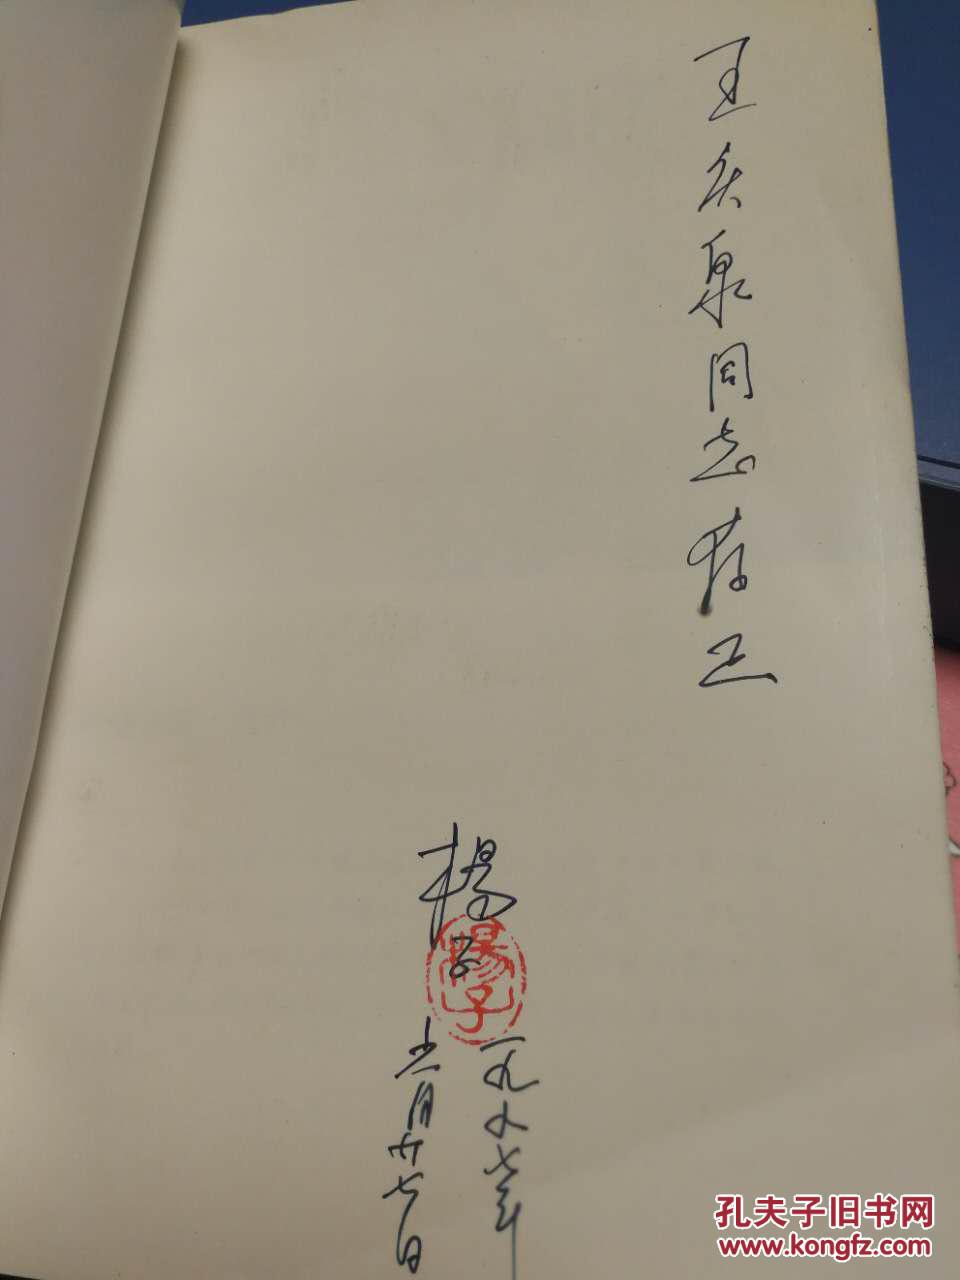 王庆泉同志存正
楊子
楊子
一九八七年
十一月廿七日
孔夫子旧书网
www.kongfz.com